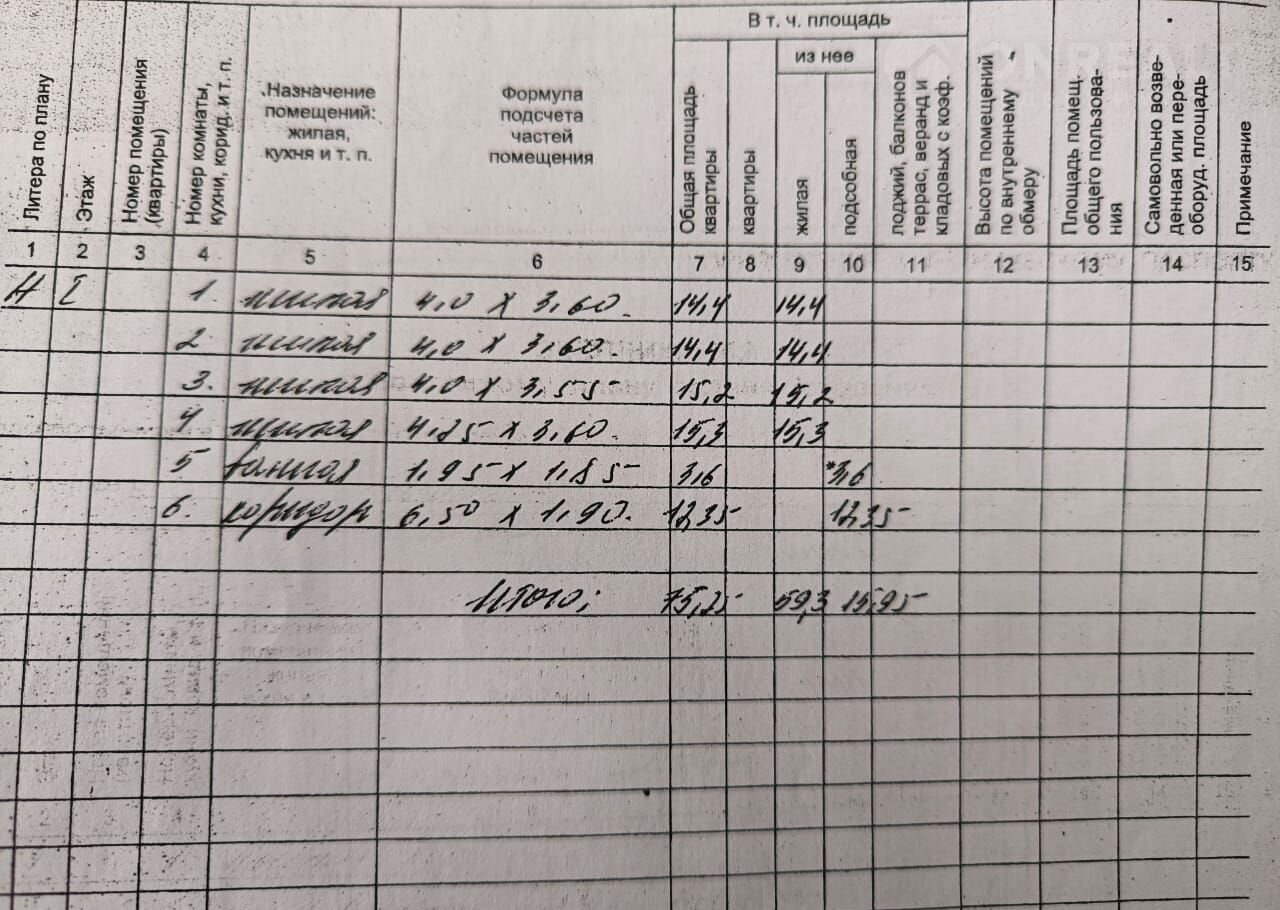 Литера по плану
Этаж
Номер помещения (квартиры)
Номер комнаты, кухни, корид. и т. п.
Назначение помещений: жилая, кухня и т. п.
Формула подсчета частей помещения
Общая площадь квартиры
В т. ч. площадь
квартиры
из нее
жилая
подсобная
лоджий, балконов террас, веранд и кладовых с коэф.
Высота помещений по внутреннему обмеру
Площадь помещ. общего пользования
Самовольно возведенная или переоборуд. площадь
Примечание
1 2 3 4 5 6 7 8 9 10 11 12 13 14 15
Н I 1. жилая 4,0 х 3,60. 14,4 14,4
2. жилая 4,0 х 3,60. 14,4 14,4
3. жилая 4,0 х 3,55 15,2 15,2
4 жилая 4,25 х 3,60. 15,3 15,3
5 ванная 1,95 х 1,85 3,6 3,6
6. коридор 6,50 х 1,90. 12,35 12,35
Итого: 75,25 59,3 15,95